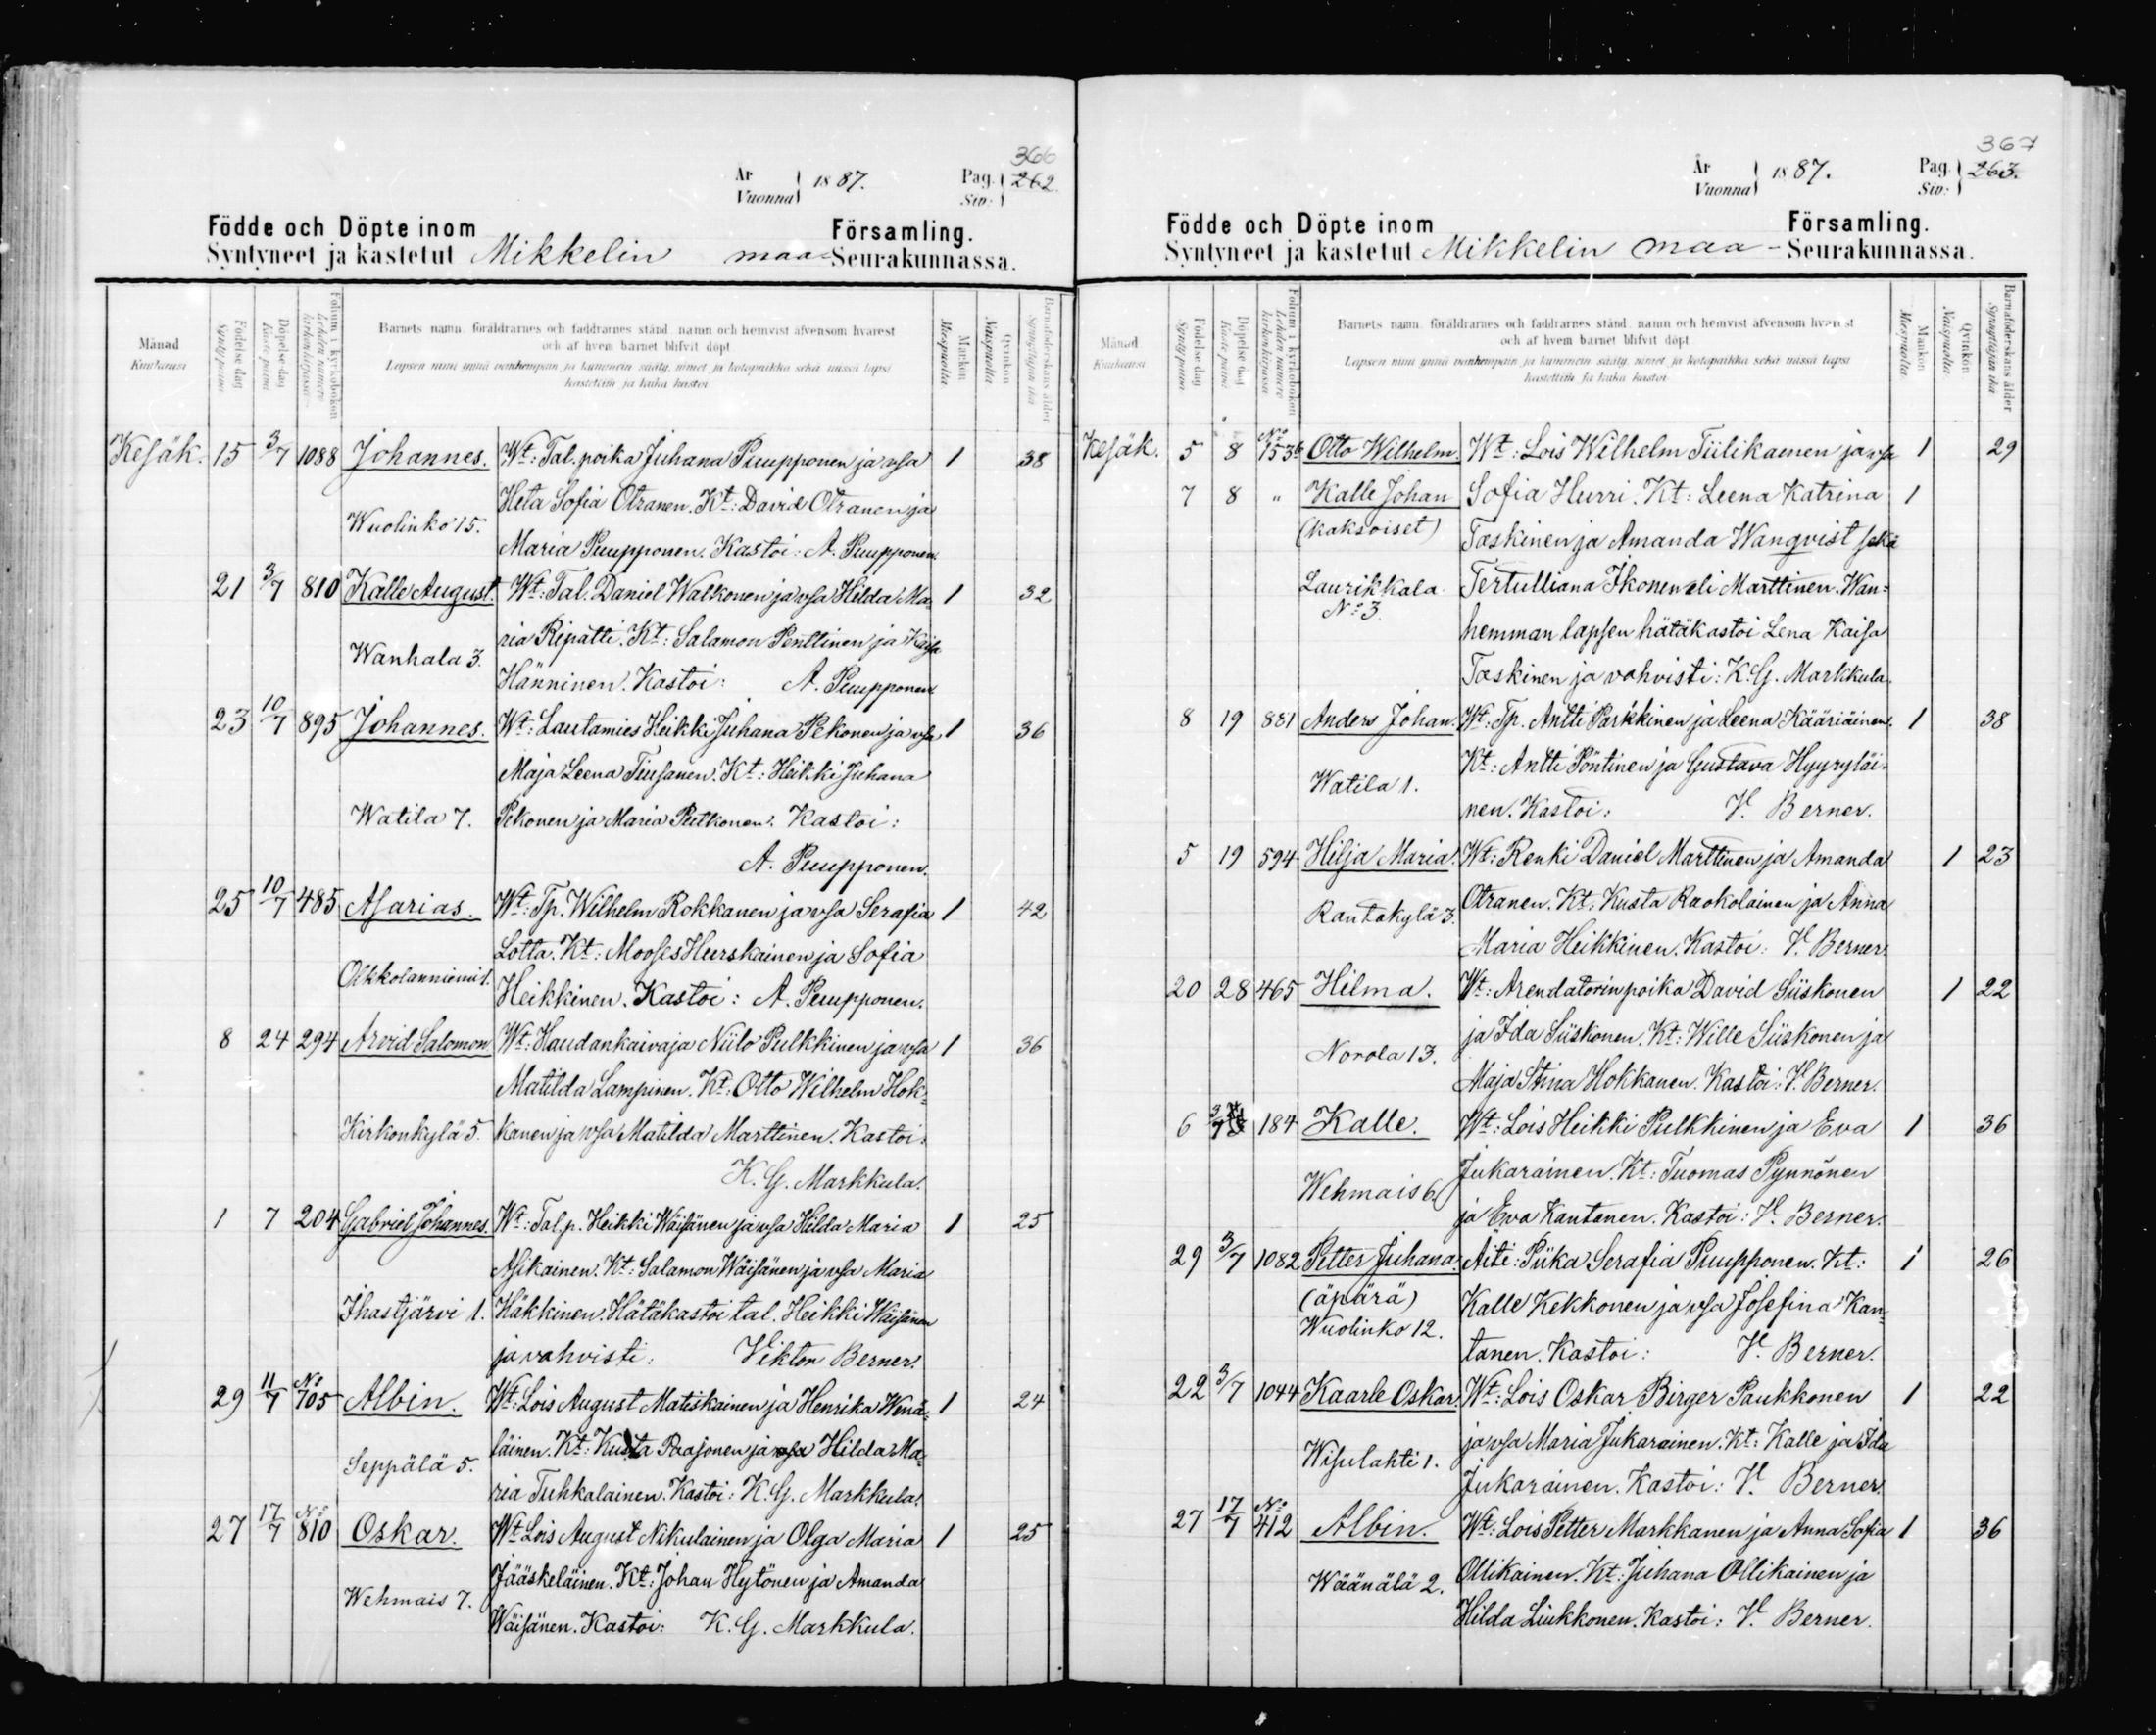 366
År
Vuonna
1887.
Pag.
Siv:
262.
Födde och Döpte inom
Församling.
Syntyneet ja kastetut Mikkelin maa-Seurakunnassa.
Månad
Kuukausi
Födelse-dag
Synty-päivä
Döpelse-dag
Kaste-päivä
Folium i kyrkobokon
Lehden numero kirkonkirjassa
Barnets namn, föräldrarnes och faddrarnes stånd, namn och hemvist äfvensom hvarest
och af hvem barnet blifvit döpt
Lapsen nimi ynnä vanhempain ja kummein sääty, nimet ja kotopaikka sekä missä lapsi
kastettiin ja kuka kastoi
Mankön
Miespuolta
Qvinkön
Naispuolta
Barnaföderskans ålder
Synnyttäjän ikä
Kesäk. 15 3/7 1088 Johannes. Wt: Tal. poika Juhana Puupponen ja vsa 1 38
Heta Sofia Otranen. Kt: David Otranen ja
Wuolinko 15.
Maria Puupponen. Kastoi: A. Puupponen.
21 3/7 810 Kalle August. Wt: Tal. Daniel Walkonen ja vsa Hilda Ma- 1 32
ria Ripatti. Kt: Salamon Penttinen ja Kaisa
Wanhala 3.
Hänninen. Kastoi: A. Puupponen.
23 10/7 895 Johannes. Wt: Lautamies Heikki Juhana Pekonen ja vsa 1 36
Maja Leena Tiusanen. Kt: Heikki Juhana
Watila 7. Pekonen ja Maria Putkonen. Kastoi:
A. Puupponen.
25 10/7 485 Asarias. Wt: Tp. Wilhelm Rokkanen ja vsa Serafia 1 42
Lotta. Kt: Mooses Heerskainen ja Sofia
Olkkolanniemi 1.
Heikkinen. Kastoi: A. Puupponen.
8 24 294 Arvid Salomon Wt: Haudankaivaja Niilo Pulkkinen ja vsa 1 36
Matilda Lampinen. Kt: Otto Wilhelm Hok-
Kirkonkylä 5. kanen ja vsa Matilda Marttinen. Kastoi:
K. G. Markkula.
1 7 204 Gabriel Johannes. Wt: Tal. p. Heikki Wäisänen ja vsa Hilda Maria 1 25
Asikainen. Kt: Salamon Wäisänen ja vsa Maria
Ihastjärvi 1. Häkkinen. Hätäkastoi tal. Heikki Wäisänen
ja vahvisti: Viktor Berner.
29 11/7 No 705 Albin. Wt: Lois August Matiskainen ja Henrika Wenä- 1 24
läinen. Kt: Kusta Paajonen ja vsa Hilda Ma-
Seppälä 5.
ria Tuhkalainen. Kastoi: K. G. Markkula.
27 17/7 No 810 Oskar. Wt Lois August Nikulainen ja Olga Maria 1 25
Jääskeläinen. Kt: Johan Hytönen ja Amanda
Wehmais 7.
Wäisänen. Kastoi: K. G. Markkula.
367
År
Vuonna
1887.
Pag.
Siv:
263.
Födde och Döpte inom
Församling.
Syntyneet ja kastetut Mikkelin maa-Seurakunnassa.
Månad
Kuukausi
Födelse-dag
Synty-päivä
Döpelse-dag
Kaste-päivä
Folium i kyrkobokon
Lehden numero kirkonkirjassa
Barnets namn, föräldrarnes och faddrarnes stånd, namn och hemvist äfvensom hvarest
och af hvem barnet blifvit döpt
Lapsen nimi ynnä vanhempain ja kummein sääty, nimet ja kotopaikka sekä missä lapsi
kastettiin ja kuka kastoi
Mankön
Miespuolta
Qvinkön
Naispuolta
Barnaföderskans ålder
Synnyttäjän ikä
Kesäk. 5 8 No 1536 Otto Wilhelm. Wt: Lois Wilhelm Tiilikainen ja vsa 1 29
7 8 " Kalle Johan Sofia Hurri. Kt: Leena Katrina 1
(kaksoiset) Taskinen ja Amanda Wanqvist sekä
Laurikkala Tertulliana Ikonen eli Marttinen. Wan-
No 3.
hemman lapsen hätäkastoi Lena Kaisa
Taskinen ja vahvisti: K. G. Markkula.
8 19 881 Anders Johan. Wt: Tp. Antti Parkkinen ja Leena Kääriäinen. 1 38
Kt: Antti Pöntinen ja Gustava Hyyryläi-
Watila 1.
nen. Kastoi: V. Berner.
5 19 594 Hilja Maria. Wt: Renki Daniel Marttinen ja Amanda 1 23
Otranen. Kt: Kusta Raokolainen ja Anna
Rantakylä 3.
Maria Heikkinen. Kastoi: V. Berner.
20 28 465 Hilma. Wt: Arendatorin poika David Siiskonen 1 22
ja Ida Siiskonen. Kt: Wille Siiskonen ja
Norola 13.
Maja Stina Hokkanen. Kastoi: V. Berner.
6 3/7 184 Kalle. Wt: Lois Heikki Pulkkinen ja Eva 1 36
Jukarainen. Kt: Tuomas Pynnönen
Wehmais 6.
ja Eva Kantanen. Kastoi: V. Berner.
29 3/7 1082 Petter Juhana. Äiti: Piika Serafia Puupponen. Kt: 1 26
(äpärä) Kalle Kekkonen ja vsa Josefina Kan-
Wuolinko 12.
tanen. Kastoi: V. Berner.
22 3/7 1044 Kaarle Oskar. Wt: Lois Oskar Birger Paukkonen 1 22
ja vsa Maria Jukarainen. Kt: Kalle ja Ida
Wisulahti 1.
Jukarainen. Kastoi: V. Berner.
27 17/7 No 412 Albin. Wt: Lois Petter Markkanen ja Anna Sofia 1 36
Ollikainen. Kt: Juhana Ollikainen ja
Wäänälä 2.
Hilda Liukkonen. Kastoi: V. Berner.